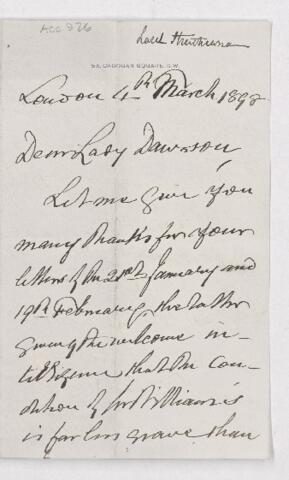 Acc 926
Lord Strathcona
53, CADOGAN SQUARE, S.W.
London 4th March 1898
Dear Lady Dawson,
Let me give you
many thanks for your
letters of the 21st January and
19th February, the latter
giving the welcome in-
telligence that the con-
dition of Sir William's
is far less grave than